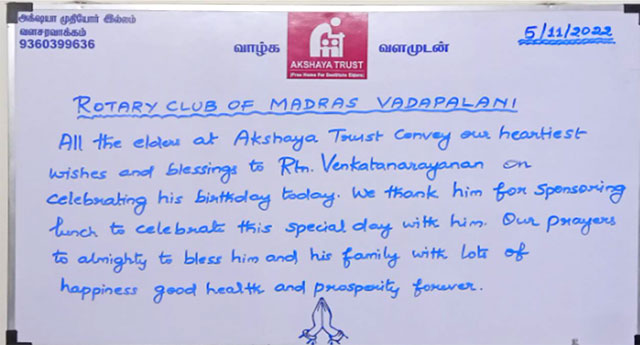 அக்ஷயா முதியோர் இல்லம்
வளசரவாக்கம்
9360399636
வாழ்க
AKSHAYA TRUST
(Free Home For Destitute Elders)
வளமுடன்
5/11/2022
ROTARY CLUB OF MADRAS VADAPALANI
All the elders at Akshaya Trust convey our heartiest
wishes and blessings to Rtn. Venkatanarayanan on
celebrating his birthday today. We thank him for sponsoring
lunch to celebrate this special day with him. Our prayers
to almighty to bless him and his family with lots of
happiness good health and prosperity forever.